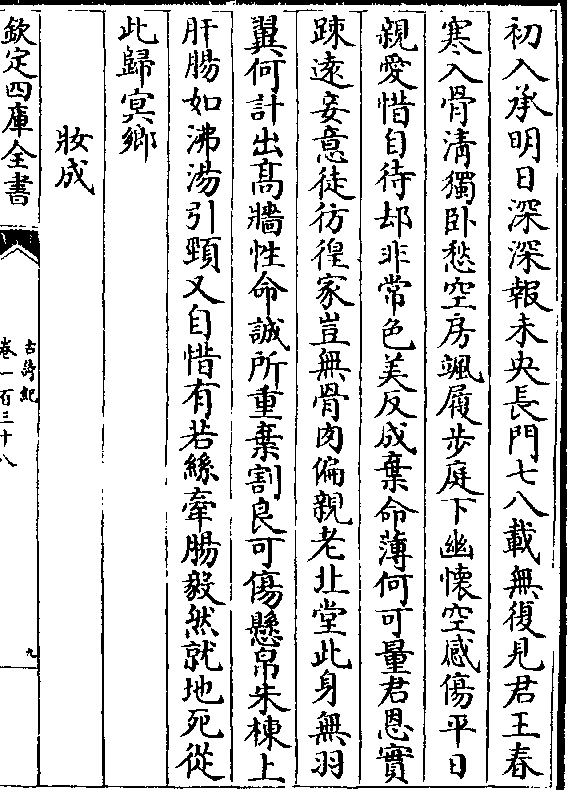 初入承明日深深報未央長門七八載無復見君王春
寒入骨清獨卧愁空房颯履步庭下幽懷空感傷平日
親愛惜自待却非常色美反成棄命薄何可量君恩實
踈遠妾意徒彷徨家豈無骨肉偏親老北堂此身無羽
翼何計出髙牆性命誠所重棄割良可傷懸帛朱棟上
肝腸如沸湯引頸又自惜有若絲牽腸毅然就地死從
此歸冥鄉
妝成
欽定四庫全書
古詩紀
卷一百三十八
九